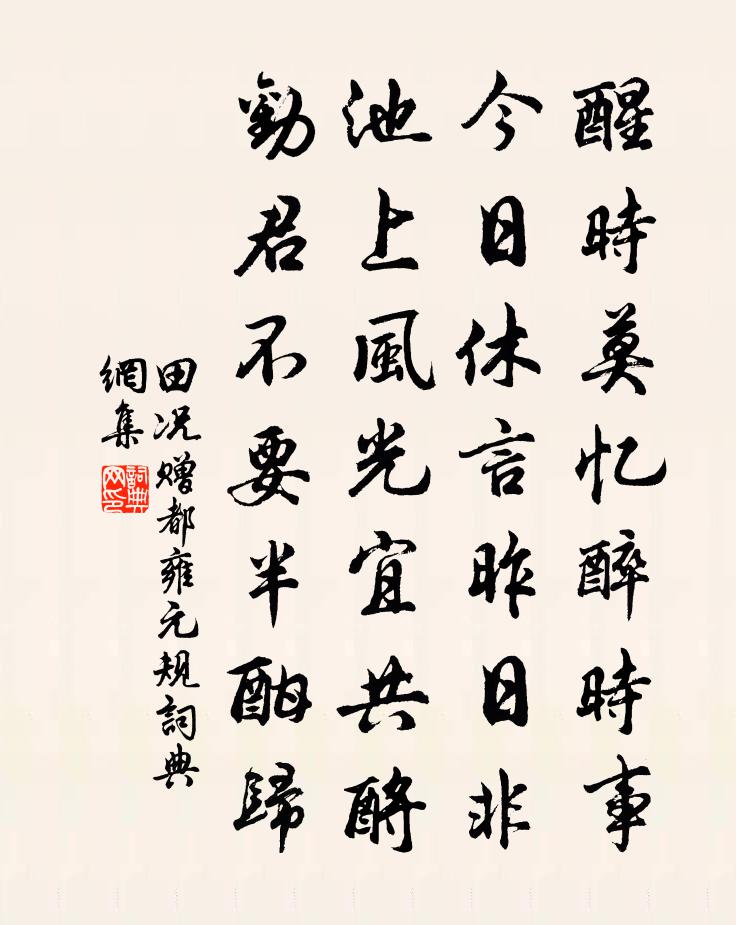 醒時莫忆醉時事
今日休言昨日非
池上風光宜共酹
勸君不要半酣歸
田况贈都雍元規詞典
網集
詞典网印